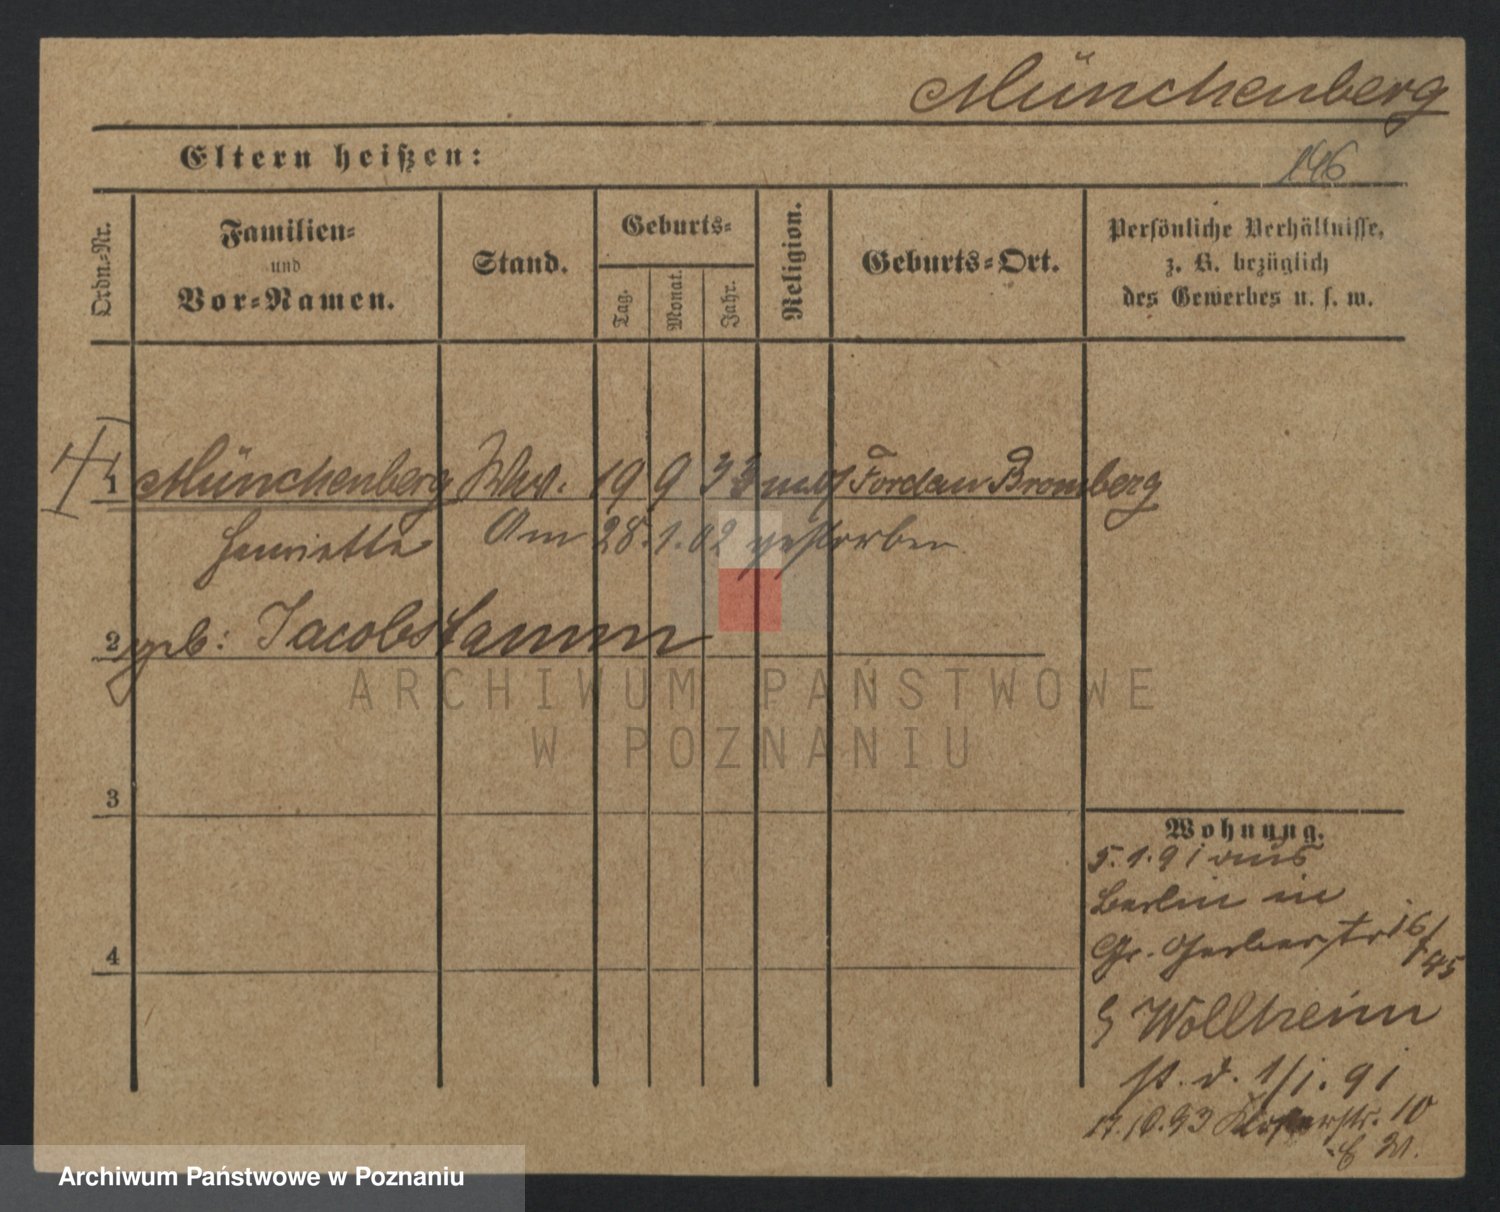 Münchenberg
146
Eltern heißen:
Ordn.-Nr.
Familien-
und
Vor-Namen.
Stand.
Geburts-
Tag.
Monat.
Jahr.
Religion.
Geburts-Ort.
Persönliche Verhältnisse,
z. B. bezüglich
des Gewerbes u. s. w.
1 Münchenberg Wwe. 19 9 33 mos Fordan Bromberg
Henriette Am 28.1.02 gestorben
2 geb: Jacobstamm
ARCHIWUM PAŃSTWOWE
W POZNANIU
3
4
Wohnung.
5.1.91 aus
Berlin in
Gr. Gerberstr 16/
45
Wollheim
st. d. 1/1.91
17.10.93 Klosterstr. 10
Archiwum Państwowe w Poznaniu